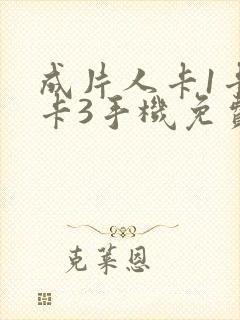 成片人卡1卡
卡3手機免費
克萊恩